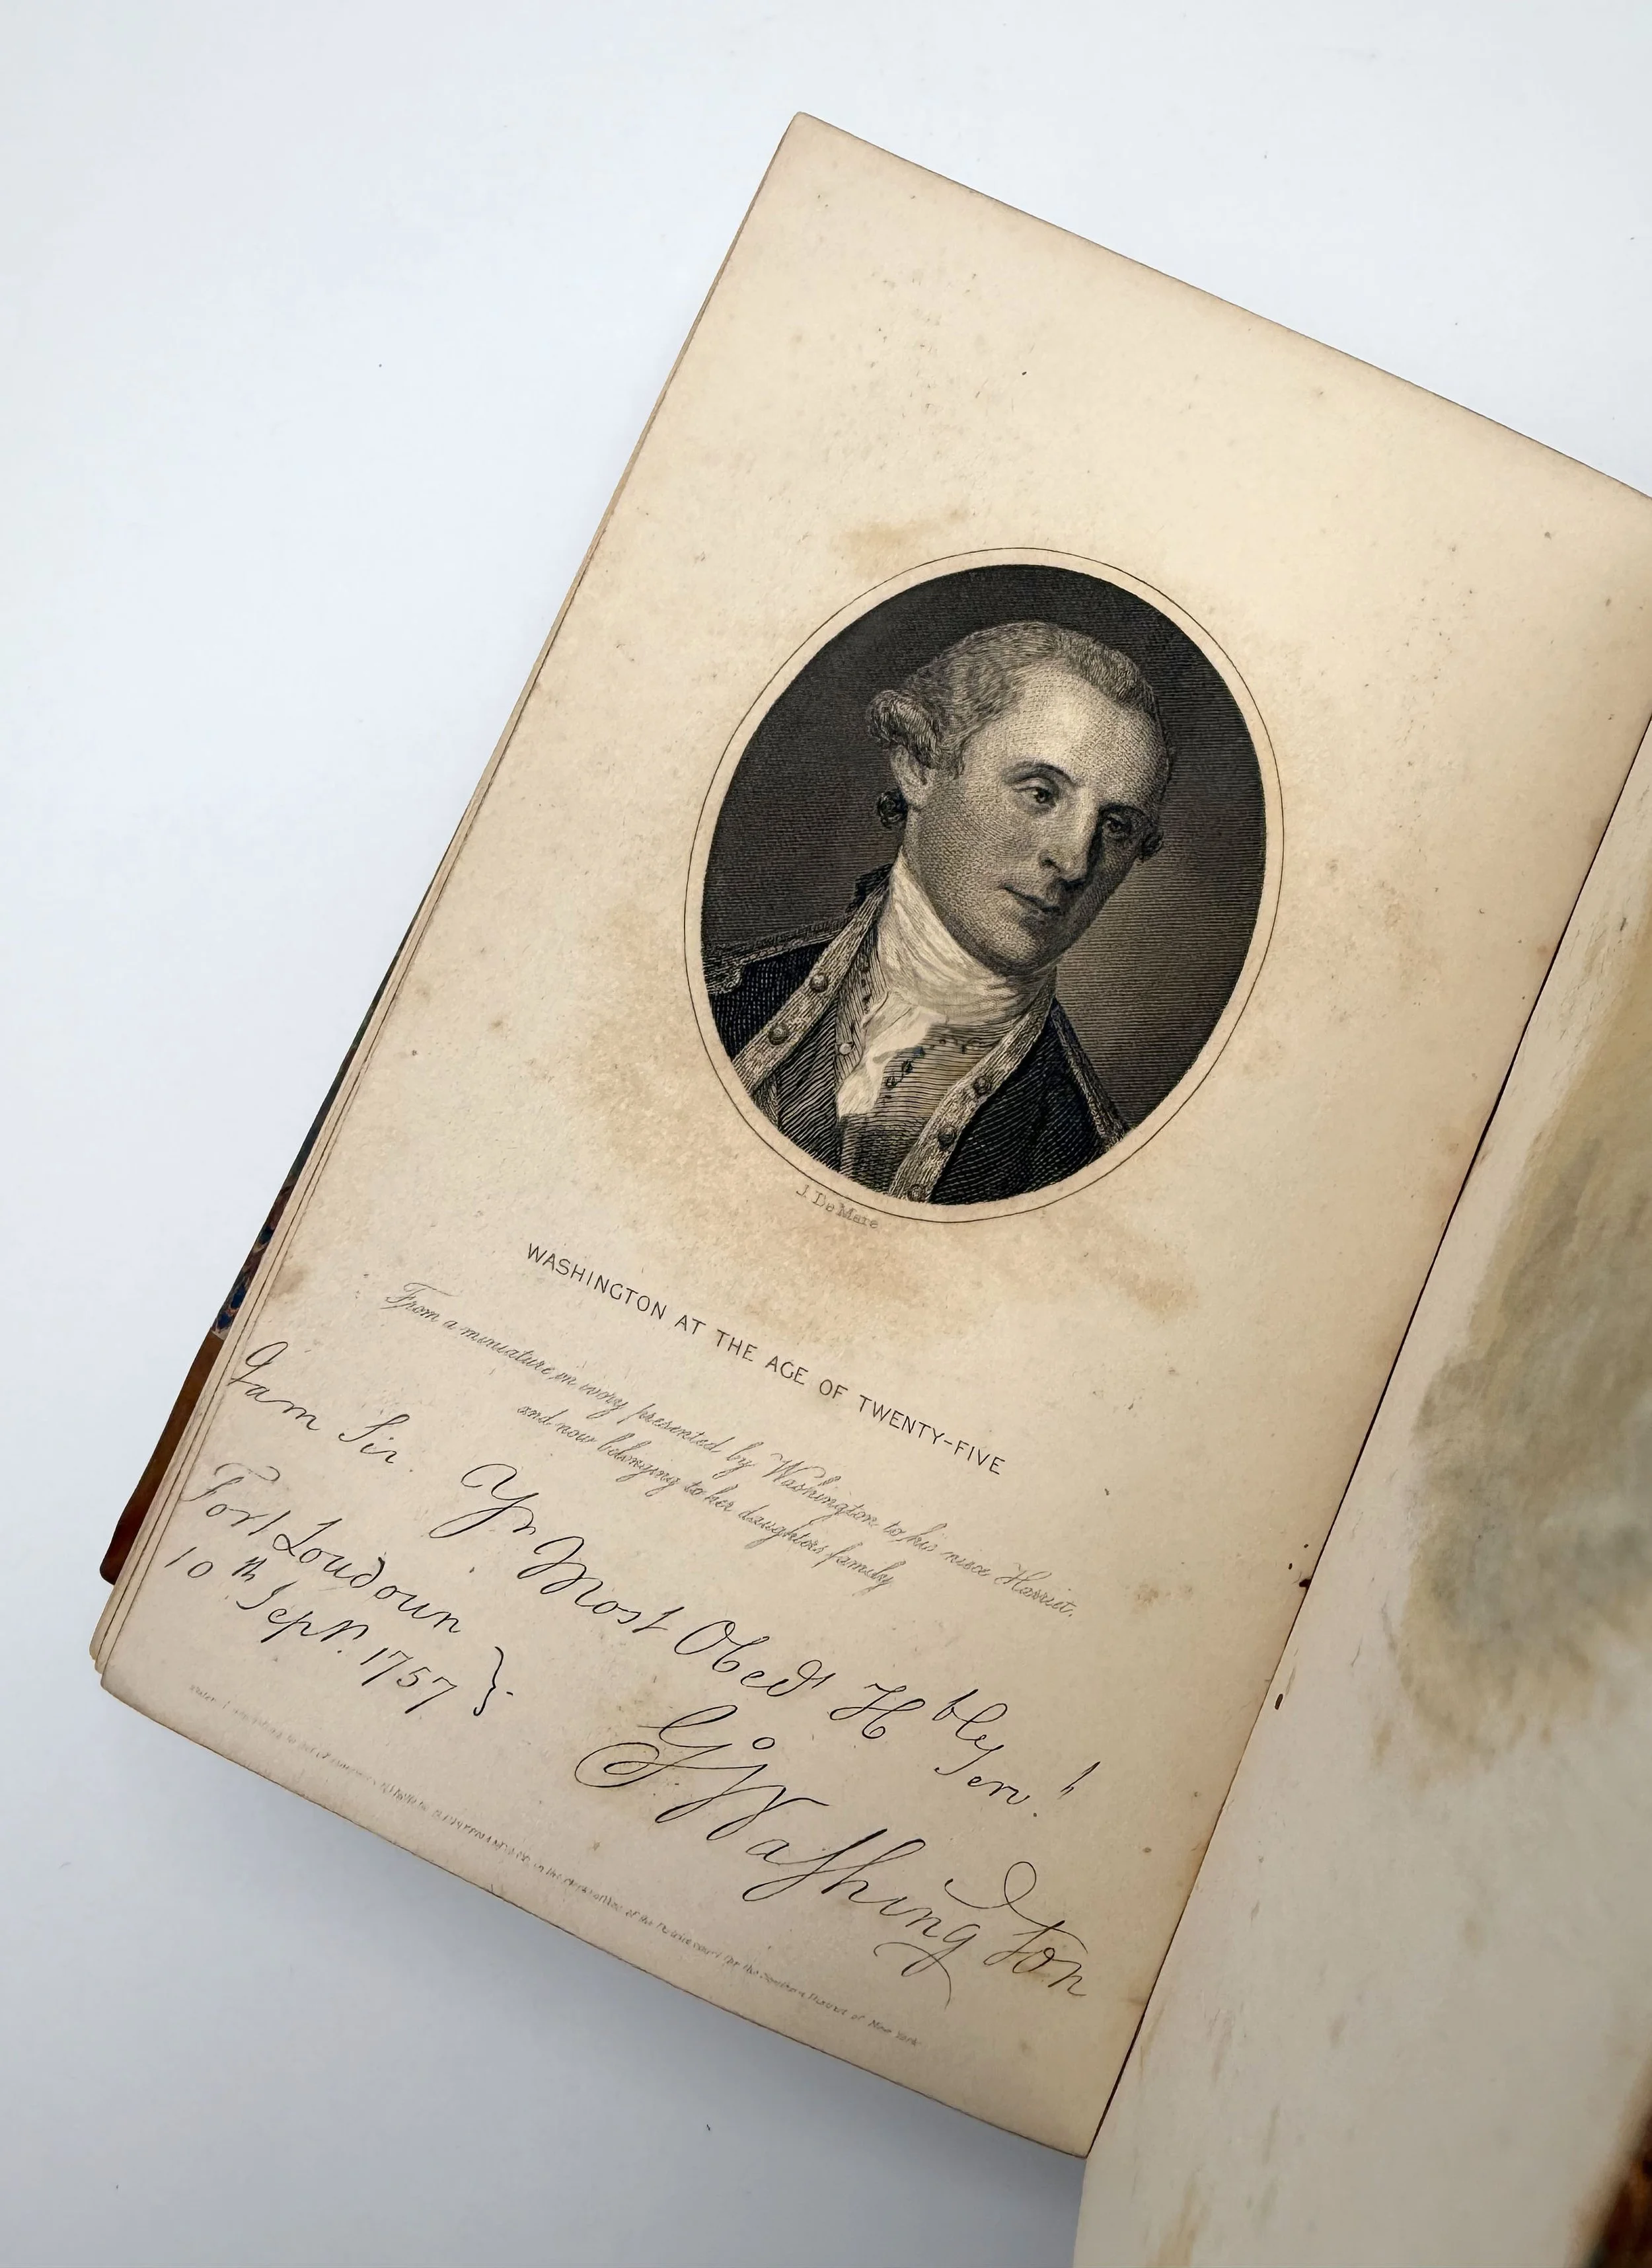 J. De Mare
WASHINGTON AT THE AGE OF TWENTY-FIVE
From a miniature on ivory presented by Washington to his niece Harriet,
and now belonging to her daughters family
I am Sir. Yr Most Obedt Hble Servt
Fort Loudoun
10th Sepr. 1757
GWashington
according to act of Congress in the clerks office of the District court for the Southern District of New York